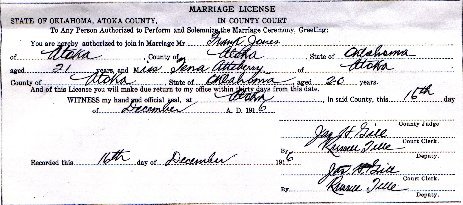 MARRIAGE LICENSE
STATE OF OKLAHOMA, ATOKA COUNTY, IN COUNTY COURT
To Any Person Authorized to Perform and Solemnize the Marriage Ceremony, Greeting:
You are hereby authorized to join in Marriage Mr Jones
of Atoka County of Atoka State of Oklahoma
aged 21 years and Miss Tena Atteberry of Atoka
County of Atoka State of Oklahoma aged 20 years.
And of this License you will make due return to my office within thirty days from this date.
WITNESS my hand and official seal, at Atoka in said County, this 16th day
of December A. D. 1916
County Judge
Jay H. Gill Court Clerk.
By Deputy.
Recorded this 16th day of December 1916
Jay H. Gill Court Clerk.
By Deputy.